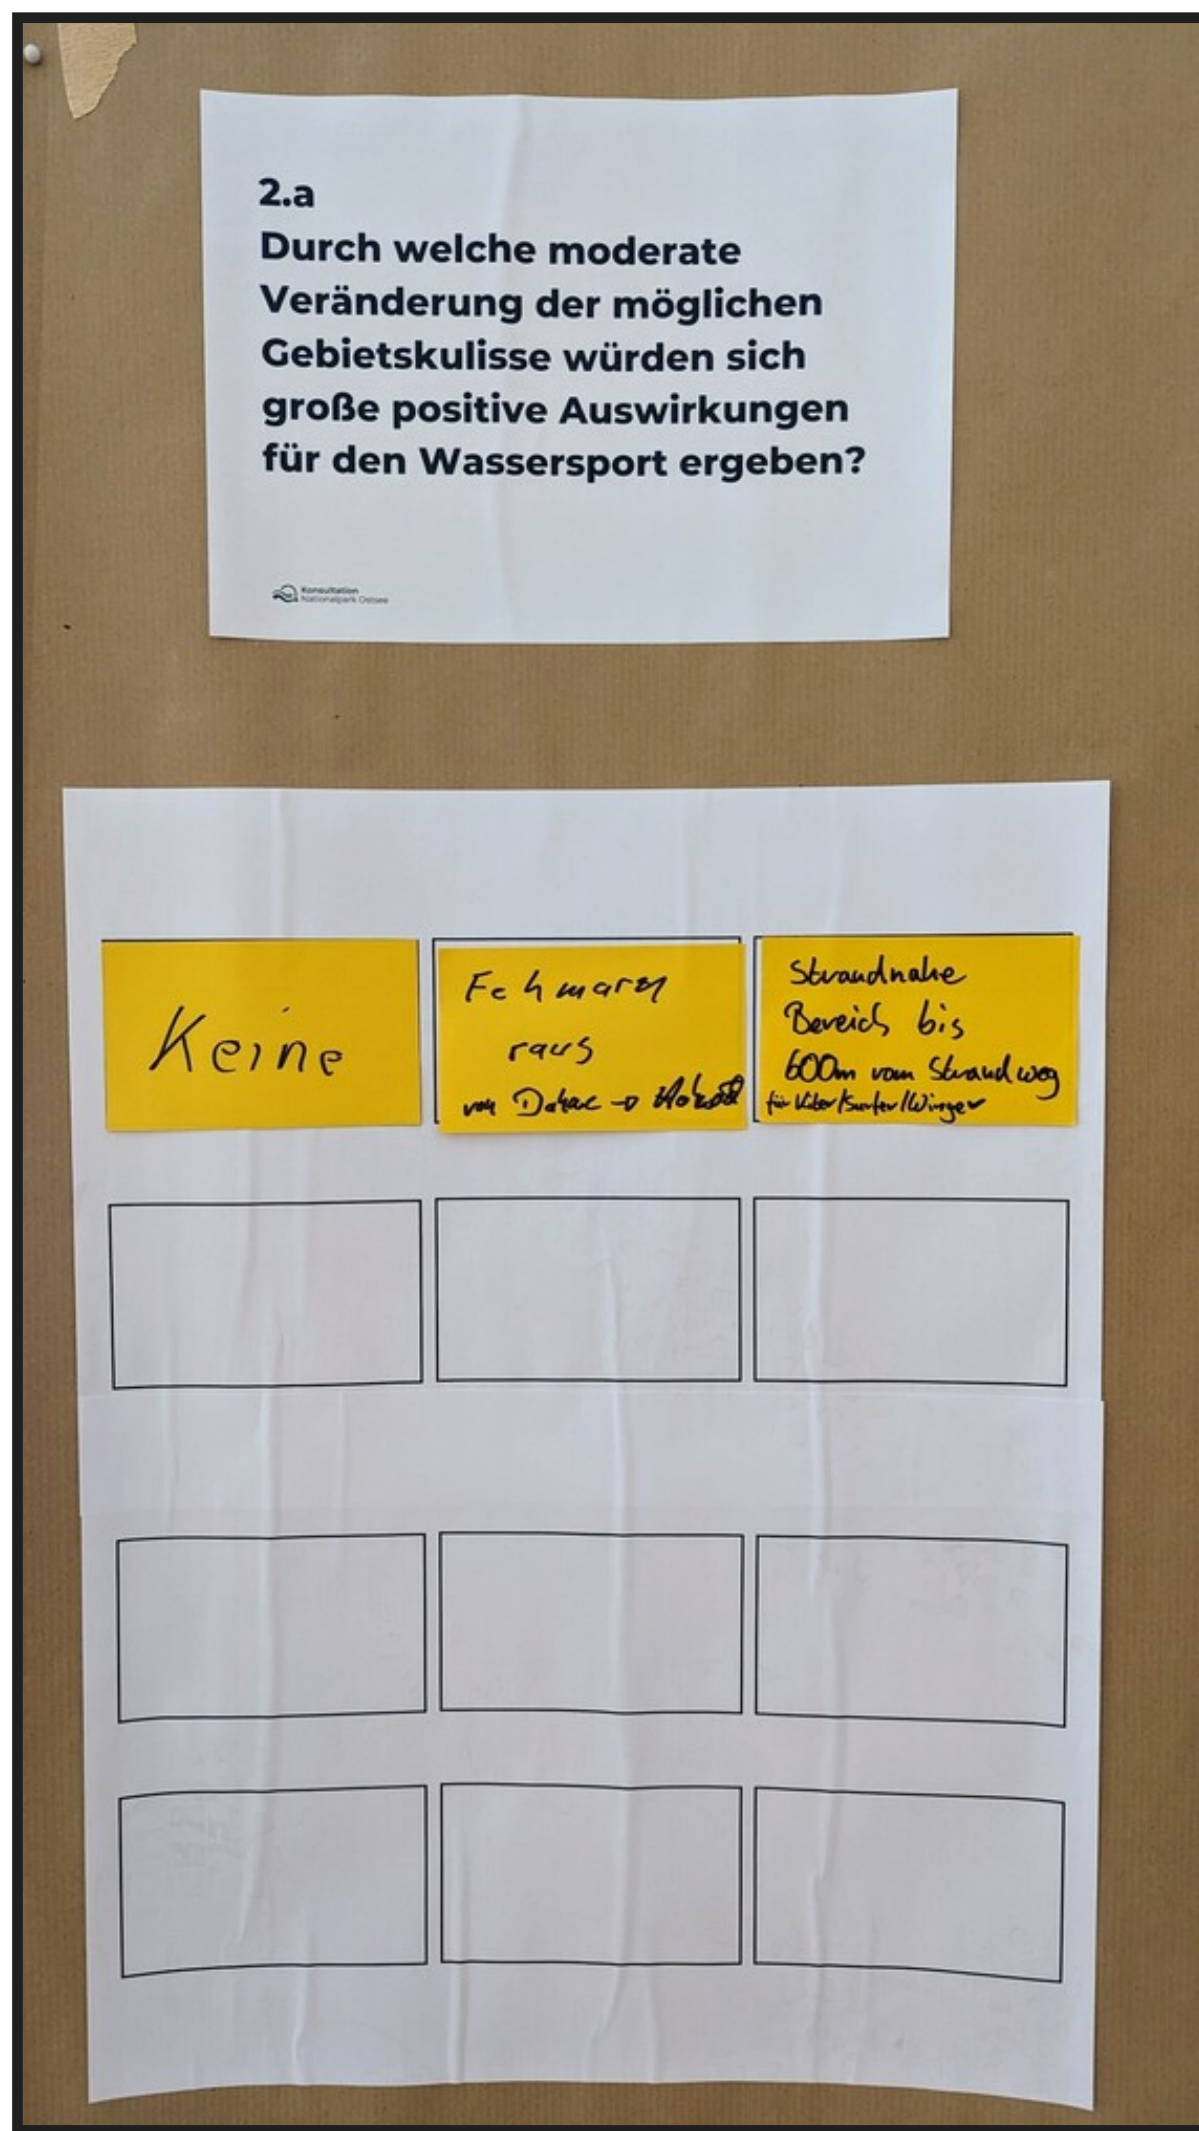 2.a
Durch welche moderate
Veränderung der möglichen
Gebietskulisse würden sich
große positive Auswirkungen
für den Wassersport ergeben?
Konsultation
Nationalpark Ostsee
Keine
Fehmarn
raus
von
Strandnahe
Bereich bis
600m vom Strand weg
für Kiter/Surfer/Winger